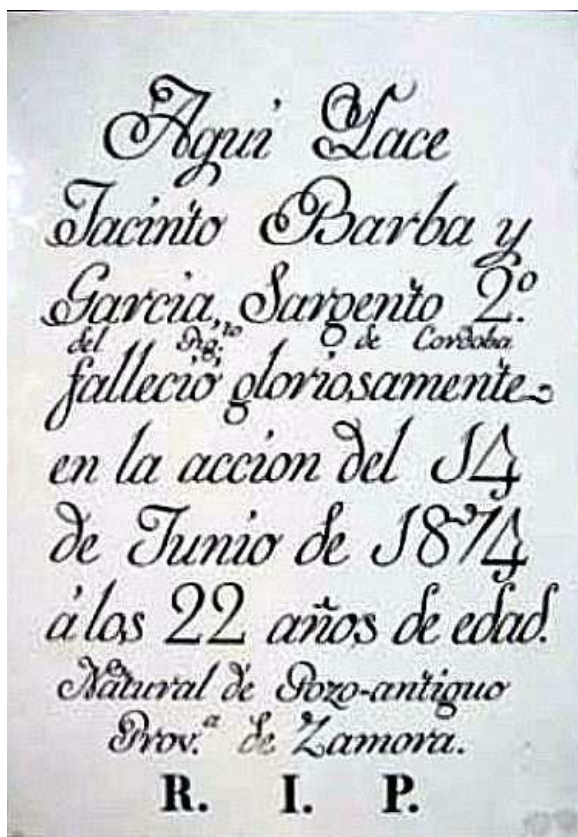 Aqui Yace
Jacinto Barba y
Garcia, Sargento 2º.
del Rg.to de Cordoba
falleció, gloriosamente
en la accion del 14
de Junio de 1874
á los 22 años de edad.
Natural de Pozo-antiguo
Prov.ª de Zamora.
R. I. P.